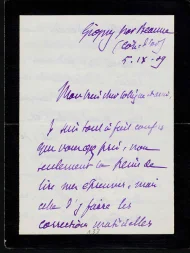 Gigny par Beaune
(Côte d'or)
5. IX. 09
Mon
Je suis tout à fait confus
que vous ayez pris, non
seulement la peine de
lire mes épreuves, mais
celle d'y faire les
corrections